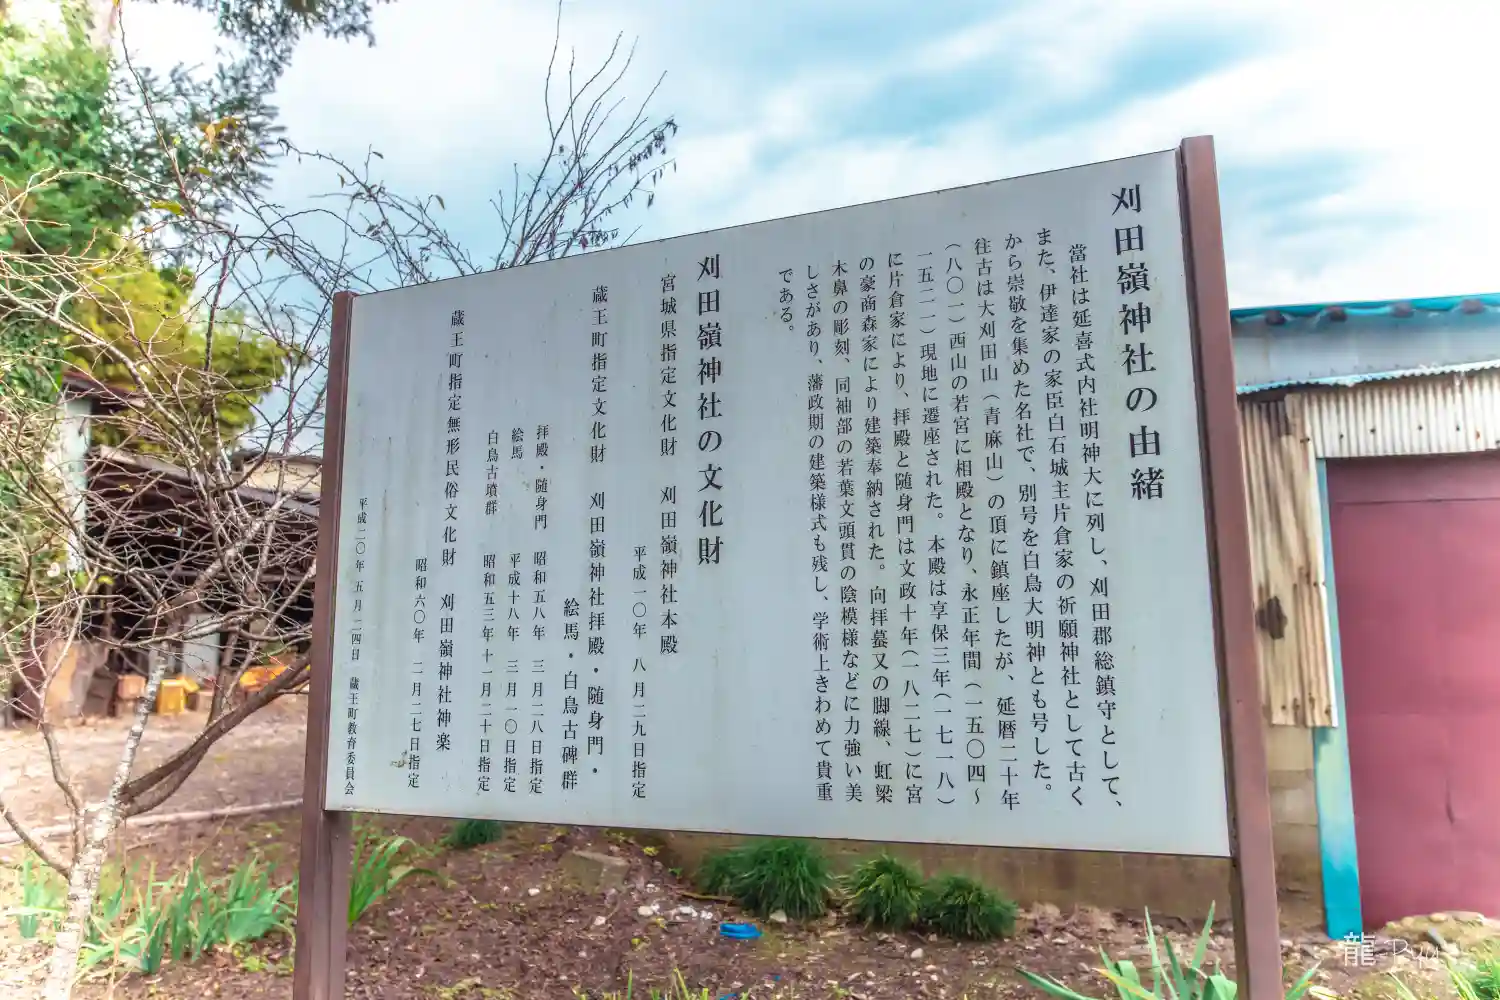 刈田嶺神社の由緒
當社は延喜式内社明神大に列し、刈田郡総鎮守として、
また、伊達家の家臣白石城主片倉家の祈願神社として古く
から崇敬を集めた名社で、別号を白鳥大明神とも号した。
往古は大刈田山（青麻山）の頂に鎮座したが、延暦二十年
（八〇一）西山の若宮に相殿となり、永正年間（一五〇四～
一五二一）現地に遷座された。本殿は享保三年（一七一八）
に片倉家により、拝殿と随身門は文政十年（一八二七）に宮
の豪商森家により建築奉納された。向拝蟇又の脚線、虹梁
木鼻の彫刻、同袖部の若葉文頭貫の陰模様などに力強い美
しさがあり、藩政期の建築様式も残し、学術上きわめて貴重
である。
刈田嶺神社の文化財
宮城県指定文化財 刈田嶺神社本殿
平成一〇年 八月二九日指定
蔵王町指定文化財 刈田嶺神社拝殿・随身門・
絵馬・白鳥古碑群
拝殿・随身門 昭和五八年 三月二八日指定
絵馬 平成十八年 三月一〇日指定
白鳥古墳群 昭和五三年十一月二十日指定
蔵王町指定無形民俗文化財 刈田嶺神社神楽
昭和六〇年 二月二七日指定
平成二〇年 五月二四日 蔵王町教育委員会
龍-Ryu